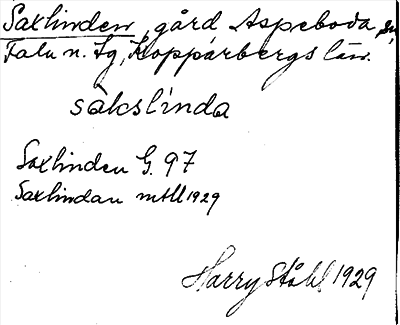 Saxlinden, gård, Aspeboda sn,
Falu n. tg, Kopparbergs län.
sàkslinda
Saxlinden G. 97
Saxlindan mtll 1929
Harry Ståhl 1929